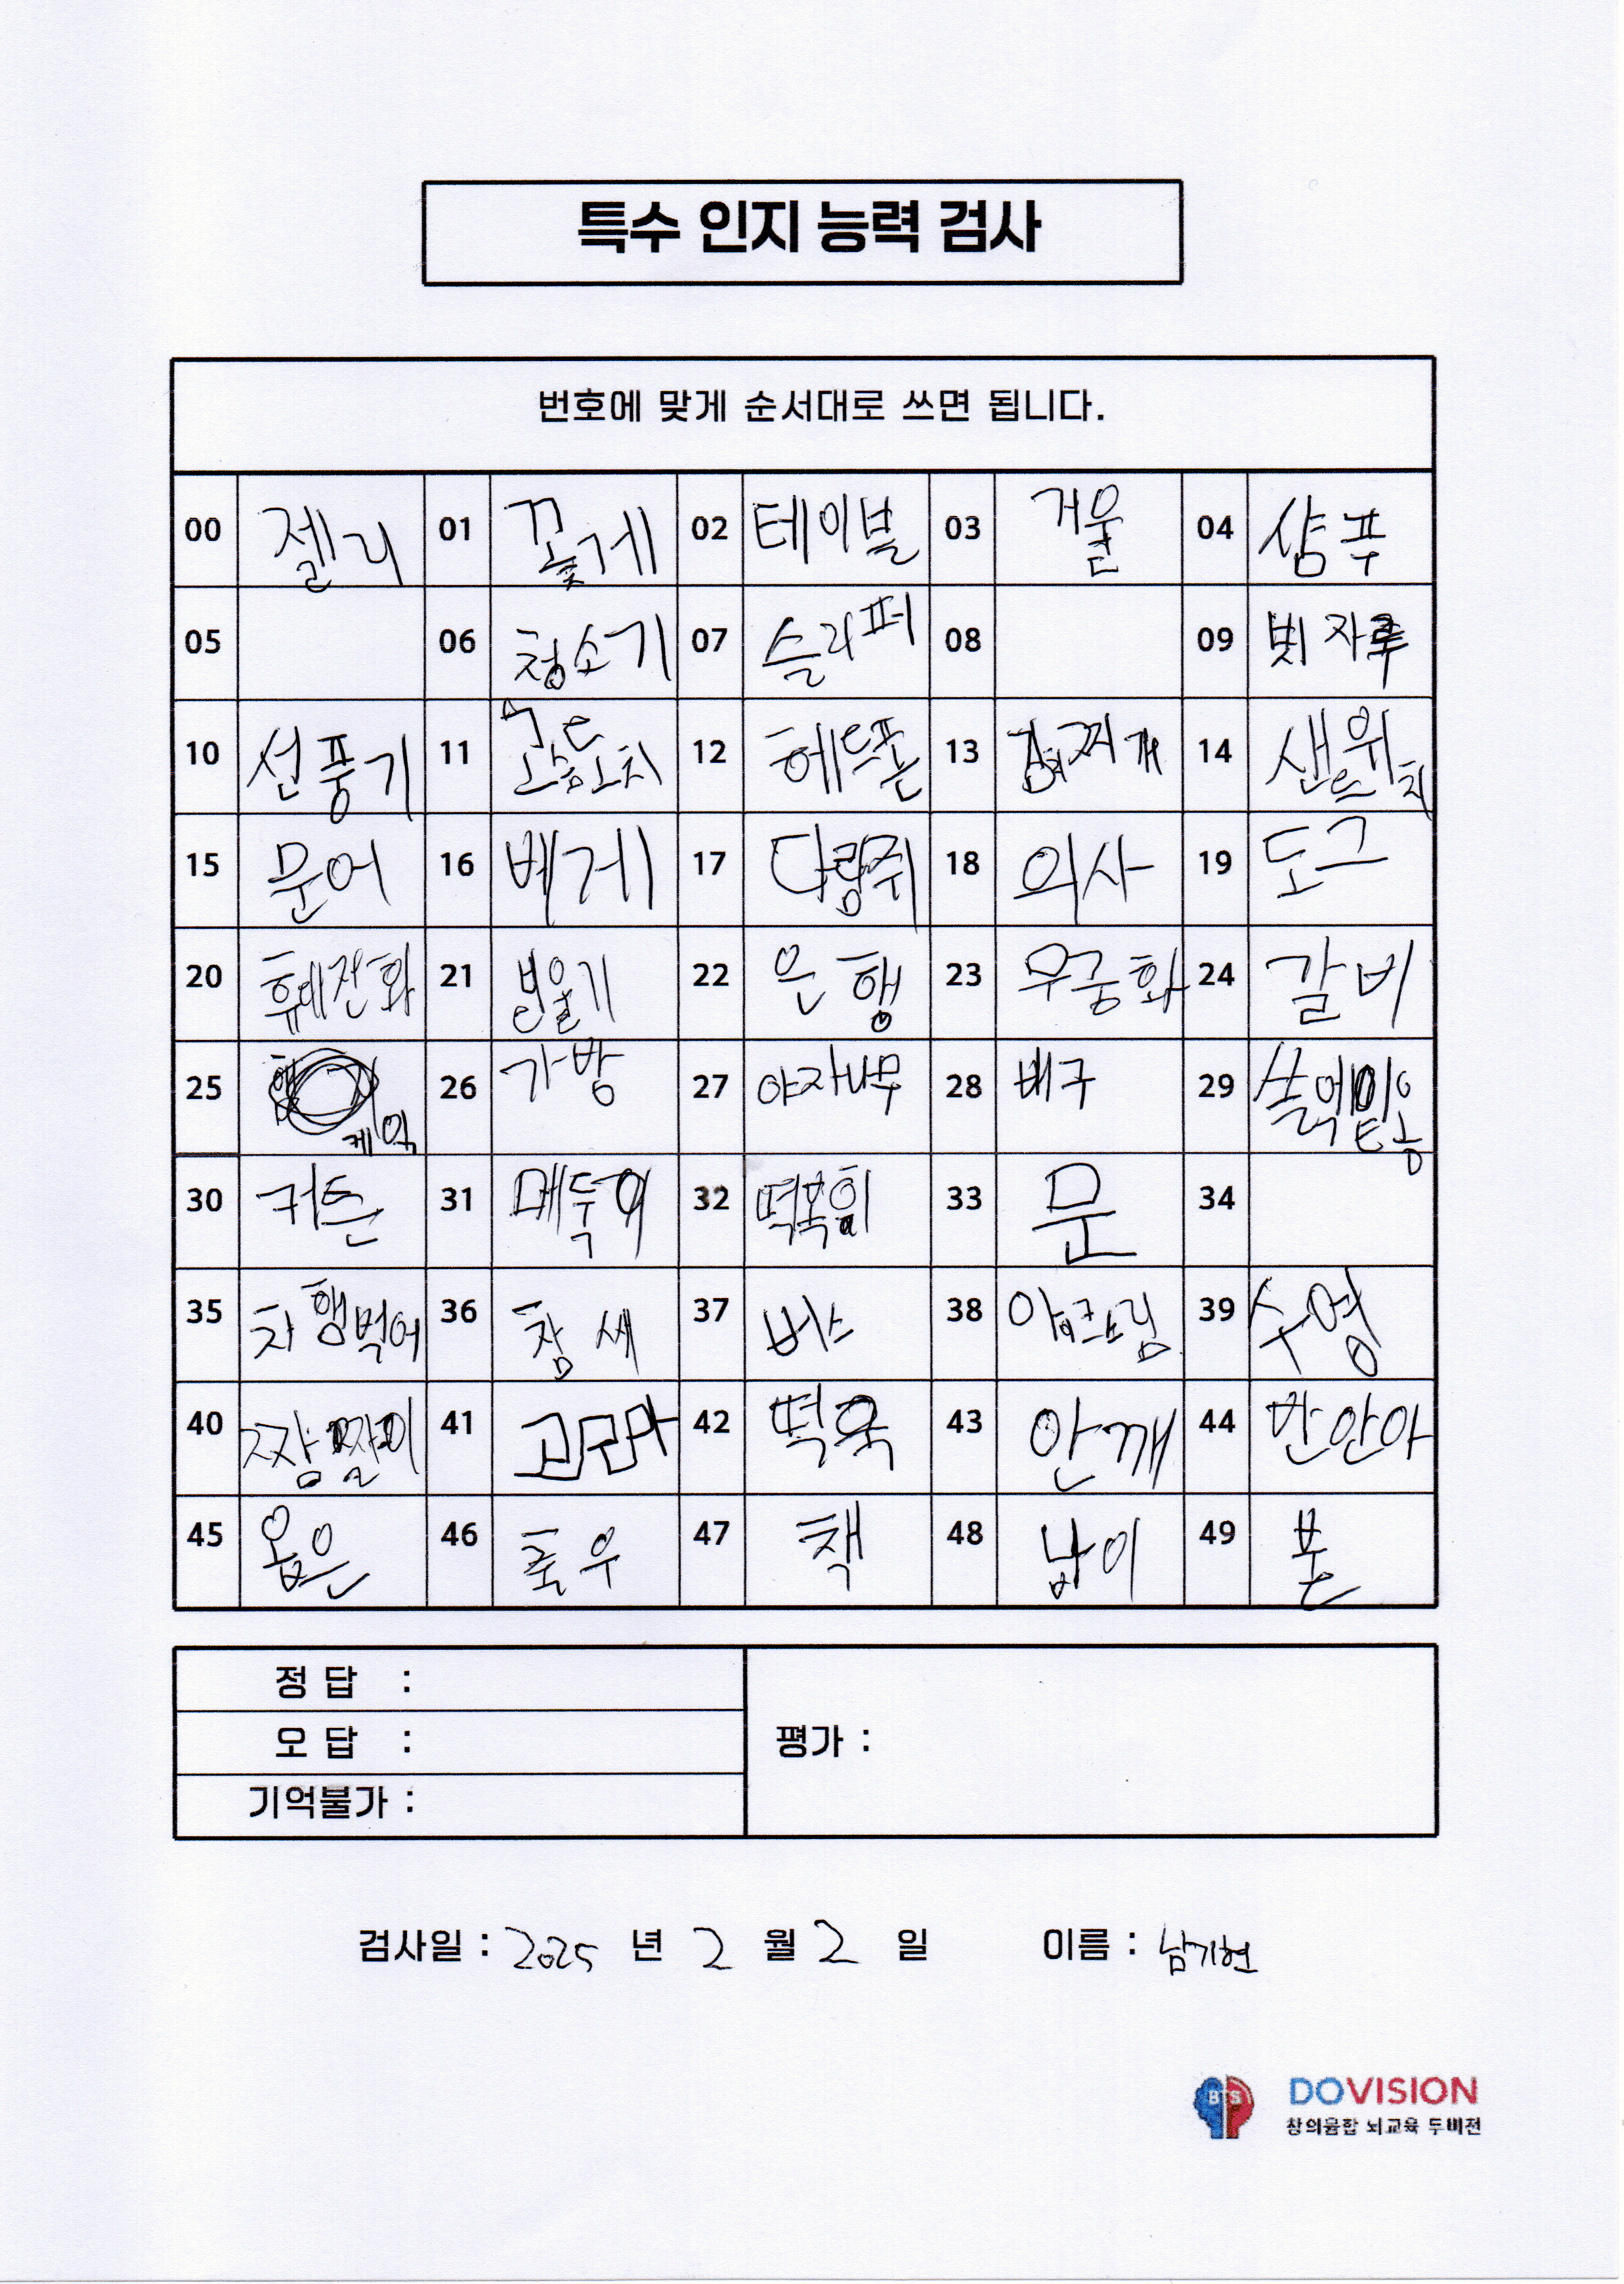 특수 인지 능력 검사
번호에 맞게 순서대로 쓰면 됩니다.
00 젤리 01 꽃게 02 테이블 03 거울 04 샴푸
05 06 청소기 07 슬리퍼 08 09 빗자루
10 선풍기 11 고슴도치 12 헤드폰 13 찌개 14 샌드위치
15 문어 16 베게 17 다람쥐 18 의사 19 도그
20 휴대전화 21 23 무궁화 22 은행 24 갈비
25 케익 26 가방 27 야자나무 28 배구 29
30 커튼 31 메뚜기 32 떡볶이 33 문 34
35 36 참새 37 버스 38 39 수영
40 41 고모라 42 떡국 43 안깨 44
45 46 축우 47 책 48 49
정답 :
오답 :
기억불가 :
평가 :
검사일 : 2025 년 2 월 2 일 이름 : 남기현
BTS DOVISION
창의융합 뇌교육 두비전